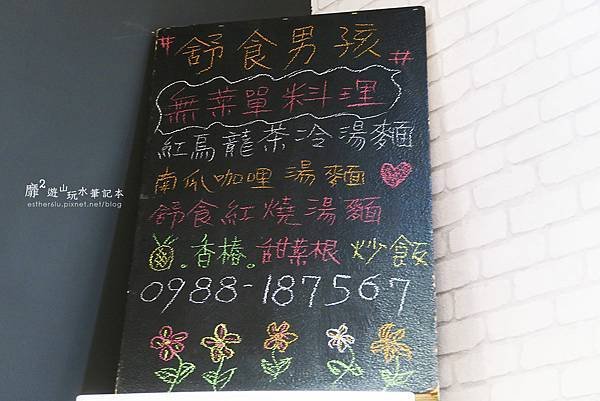 #舒食男孩#
無菜單料理
紅烏龍茶冷湯麵
南瓜咖哩湯麵
舒食紅燒湯麵
.香椿.甜菜根 炒飯
0988-187567
靡2遊山玩水筆記本
esther6lu.pixnet.net/blog